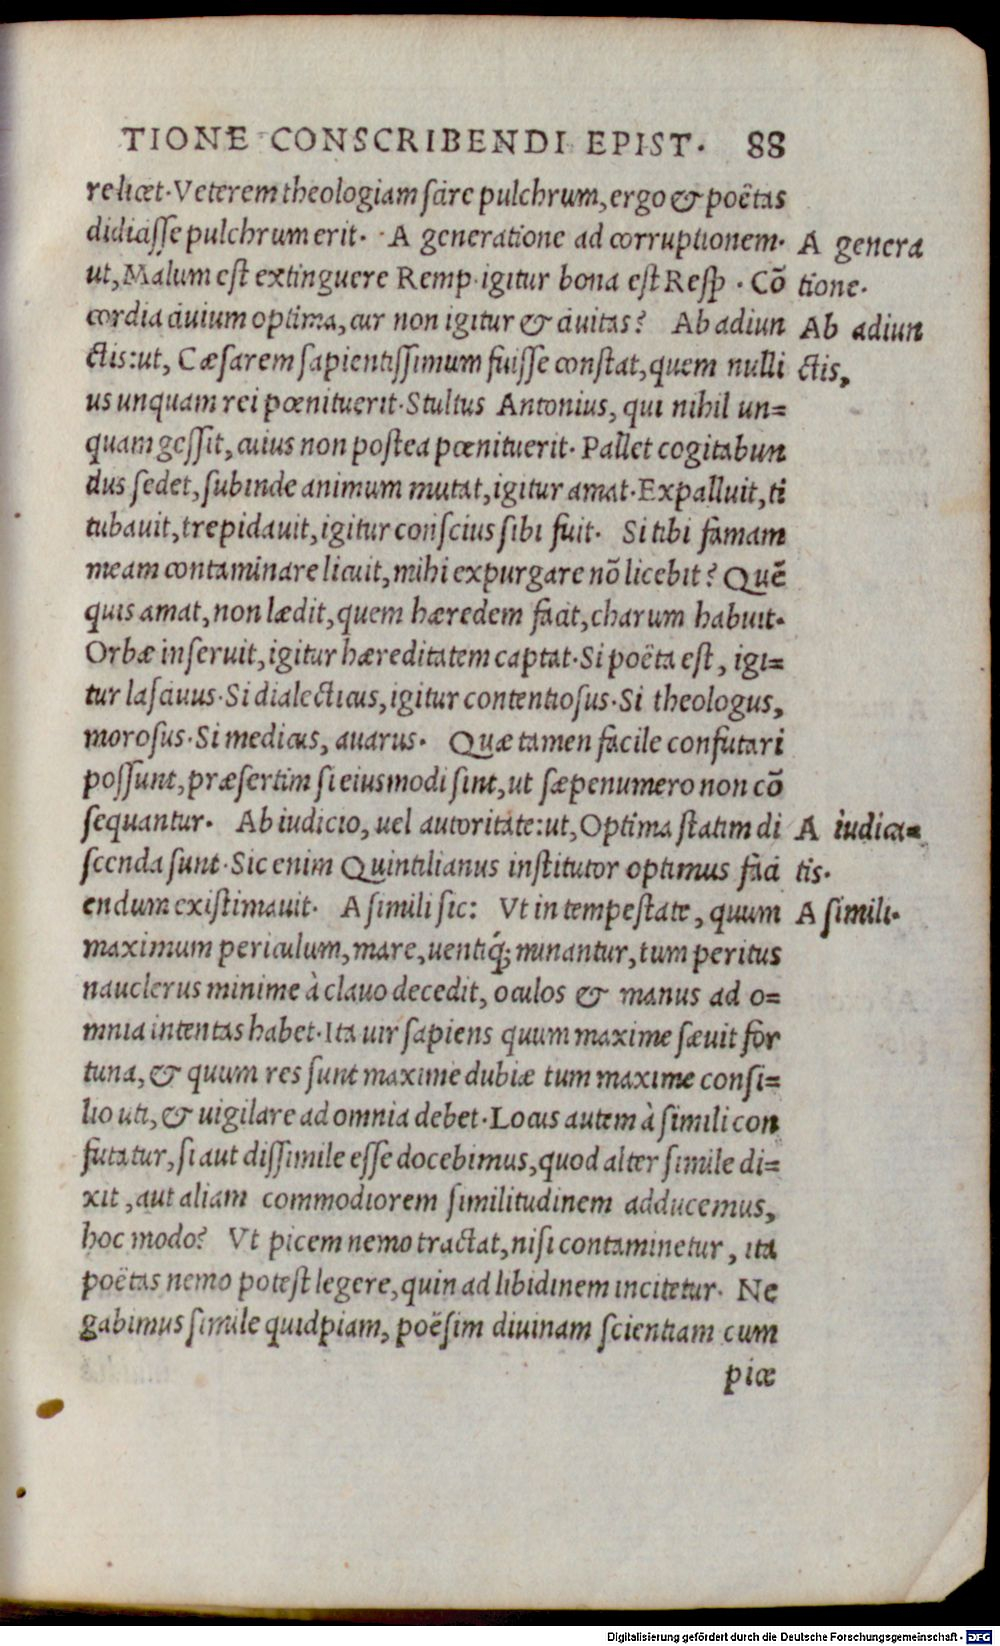 TIONE CONSCRIBENDI EPIST. 88
re licet. Veterem theologiam scire pulchrum, ergo & poëtas
didicisse pulchrum erit. A generatione ad corruptionem. A genera
ut, Malum est extinguere Remp. igitur bona est Resp. Cō tione.
cordia civium optima, cur non igitur & civitas? Ab adiun Ab adiun
ctis: ut, Cæsarem sapientissimum fuisse constat, quem nulli ctis,
us unquam rei pœnituerit. Stultus Antonius, qui nihil un=
quam gessit, cuius non postea pœnituerit. Pallet cogitabun
dus sedet, subinde animum mutat, igitur amat. Expalluit, ti
tubavit, trepidavit, igitur conscius sibi fuit. Si tibi famam
meam contaminare licuit, mihi expurgare nō licebit? Quē
quis amat, non lædit, quem hæredem facit, charum habuit.
Orbæ inservit, igitur hæreditatem captat. Si poëta est, igi=
tur lascivus. Si dialecticus, igitur contentiosus. Si theologus,
morosus. Si medicus, avarus. Quæ tamen facile confutari
possunt, præsertim si eiusmodi sint, ut sæpenumero non cō
sequantur. Ab iudicio, uel autoritate: ut, Optima statim di A iudica=
scenda sunt. Sic enim Quintilianus institutor optimus faci tis.
endum existimavit. A simili sic: Vt in tempestate, quum A simili.
maximum periculum, mare, uentiq́; minantur, tum peritus
nauclerus minime à clavo decedit, oculos & manus ad o=
mnia intentas habet. Ita uir sapiens quum maxime sævit for
tuna, & quum res sunt maxime dubiæ tum maxime consi=
lio uti, & uigilare ad omnia debet. Locus autem à simili con
futatur, si aut dissimile esse docebimus, quod alter simile di=
xit, aut aliam commodiorem similitudinem adducemus,
hoc modo? Vt picem nemo tractat, nisi contaminetur, ita
poëtas nemo potest legere, quin ad libidinem incitetur. Ne
gabimus simile quidpiam, poësim divinam scientiam cum
piæ
Digitalisierung gefördert durch die Deutsche Forschungsgemeinschaft - DFG